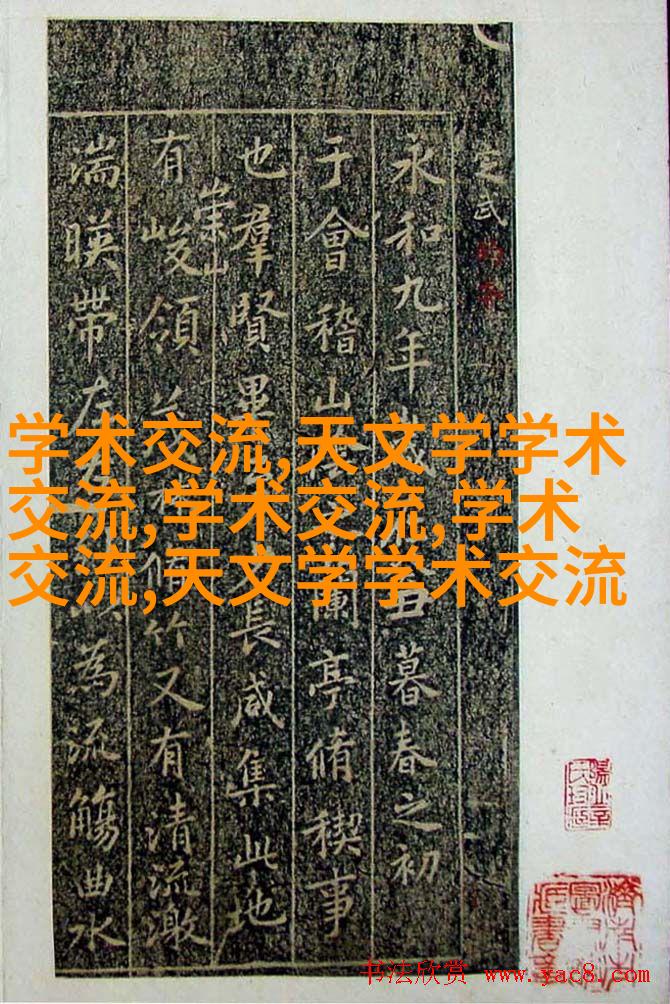 定武
永和九年丑暮春之初
于會稽山蘭亭脩稧事
也羣賢畢長咸集此地
崇山
有峻領茂脩竹又有清流激
湍暎帶左為流觴曲水
学术交流,天文学学术
交流,学术交流,学术
交流,天文学学术交流
书法欣赏 www.yac8.com